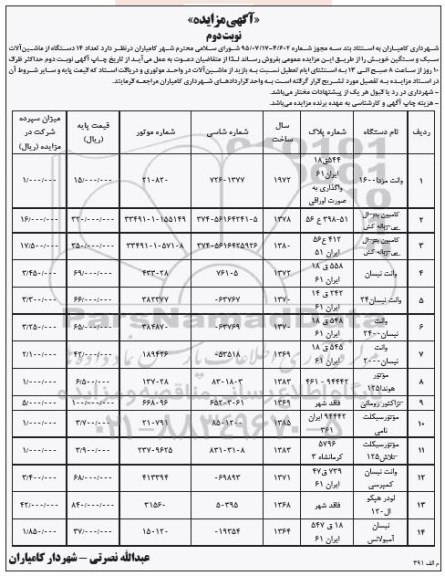 «آگهی مزایده»
نوبت دوم
شهرداری کامیاران به استناد بند سه مجوز شماره ۴/۶۰۲-۹۵/۰۷/۱۷ شورای اسلامی محترم شهر کامیاران درنظر دارد تعداد ۱۴ دستگاه از ماشین‌آلات
سبک و سنگین خویش را از طریق این مزایده عمومی بفروش رساند لذا از متقاضیان دعوت به عمل می‌آید از تاریخ چاپ آگهی نوبت دوم حداکثر ظرف
۱۰ روز از ساعت ۸ صبح الی ۱۳ به استثنای ایام تعطیل نسبت به بازدید از ماشین‌آلات در واحد موتوری و دریافت اسناد که قیمت پایه و سایر شروط آن
در اسناد مزایده به تفصیل مورد تشریح قرار گرفته است به واحد قراردادهای شهرداری کامیاران مراجعه فرمایند.
- شهرداری در رد یا قبول هر یک از پیشنهادات مختار می‌باشد.
- هزینه چاپ آگهی و کارشناسی به عهده برنده مزایده می‌باشد.
ردیف | نام دستگاه | شماره پلاک | سال ساخت | شماره شاسی | شماره موتور | قیمت پایه (ریال) | میزان سپرده شرکت در مزایده (ریال)
۱ | وانت مزدا ۱۶۰۰ | ۵۴۴ق۱۸ ایران ۶۱ واگذاری به صورت اوراقی | ۱۹۷۲ | ۷۲۶-۱۳۷۷ | ۲۱۰۸۲۰ | ۱۵/۰۰۰/۰۰۰ | ۱/۰۰۰/۰۰۰
۲ | کامیون | ۳۹۸-۵۱ ع ۵۶ | ۱۳۷۸ | ۳۷۴-۵۶۱۶۴۲۴۱۰۵ | ۳۳۴۹۱-۱۰۱۵۵۱۴۹ | ۳۲۰/۰۰۰/۰۰۰ | ۱۶/۰۰۰/۰۰۰
۳ | کامیون | ۴۱۲ ع۵۶ ایران ۵۱ | ۱۳۸۰ | ۳۷۴-۵۶۱۶۴۲۵۹۲۶ | ۳۳۴۹۱-۱۰۵۷۱۰۸ | ۳۵۰/۰۰۰/۰۰۰ | ۱۷/۵۰۰/۰۰۰
۴ | وانت نیسان | ۵۵۸ ق ۱۸ ایران ۶۱ | ۱۳۷۲ | ۷۶۱۰۵ | ۴۳۳۰۲۸ | ۶۹/۰۰۰/۰۰۰ | ۳/۴۵۰/۰۰۰
۵ | وانت نیسان ۲۴ | ۲۴۲ ق ۱۴ ایران ۶۱ | ۱۳۷۰ | ۰۶۳۷۶۷ | ۳۸۲۳۷۷ | ۶۶/۰۰۰/۰۰۰ | ۳/۳۰۰/۰۰۰
۶ | وانت نیسان ۲۴۰۰ | ۵۴۸ ق ۱۸ ایران ۶۱ | ۱۳۷۰ | ۰۶۳۷۶۹ | ۳۸۴۸۷۰ | ۶۵/۰۰۰/۰۰۰ | ۳/۲۵۰/۰۰۰
۷ | وانت نیسان ۲۰۰۰ | ۵۴۵ ق ۱۸ ایران ۶۱ | ۱۳۶۹ | ۰۵۳۵۱۸ | ۱۸۹۴۳۶ | ۴۲/۰۰۰/۰۰۰ | ۲/۱۰۰/۰۰۰
۸ | موتور هوندا ۱۲۵ | ۹۴۴۴۲ - ۴۶۱ | ۱۳۸۳ | ۸۳۰۱۸۰۳ | ۱۳۷۰۲۸ | ۶/۵۰۰/۰۰۰ | ۱/۰۰۰/۰۰۰
۹ | تراکتور رومانی | فاقد شهر | ۱۳۶۹ | ۶۵۲۰۳۰۶۱ | ۶۶۸۰۹۶ | ۱۰۰/۰۰۰/۰۰۰ | ۵/۰۰۰/۰۰۰
۱۰ | موتورسیکلت نامی | ۹۴۴۴۲ ایران ۳۶۱ | ۱۳۸۵ | ۸۵۰۱۲۰۰ | ۲۱۰۷۹۱ | ۳/۷۰۰/۰۰۰ | ۱/۰۰۰/۰۰۰
۱۱ | موتورسیکلت تلاش ۱۲۵ | ۵۷۹۶ کرمانشاه ۳ | ۱۳۸۳ | ۸۳۱۰۳۱۰۸ | ۲۳۷۰۹۶۲۵ | ۳/۹۰۰/۰۰۰ | ۱/۰۰۰/۰۰۰
۱۲ | وانت نیسان کمپرسی | ۷۳۹ ق۴۷ ایران ۶۱ | ۱۳۷۱ | ۰۶۹۸۹۳ | ۴۱۳۳۹۴ | ۶۸/۰۰۰/۰۰۰ | ۳/۴۰۰/۰۰۰
۱۳ | لودر هپکو ال۱۲۰ | فاقد شهر | ۱۳۶۸ | ۵۰۳۹۵ | ۳۱۵۶۰ | ۸۴۰/۰۰۰/۰۰۰ | ۴۲/۰۰۰/۰۰۰
۱۴ | نیسان آمبولانس | ۱۸ ق ۵۴۷ ایران ۶۱ | ۱۳۶۴ | ۰۱۹۲۵۴ | ۱۵۰۱۲۰ | ۳۷/۰۰۰/۰۰۰ | ۱/۸۵۰/۰۰۰
عبدالله نصرتی – شهردار کامیاران
م الف ۳۹۱
ParsNamadData
۰۲۱-۸۸۳۴۹۶۷۰-۵